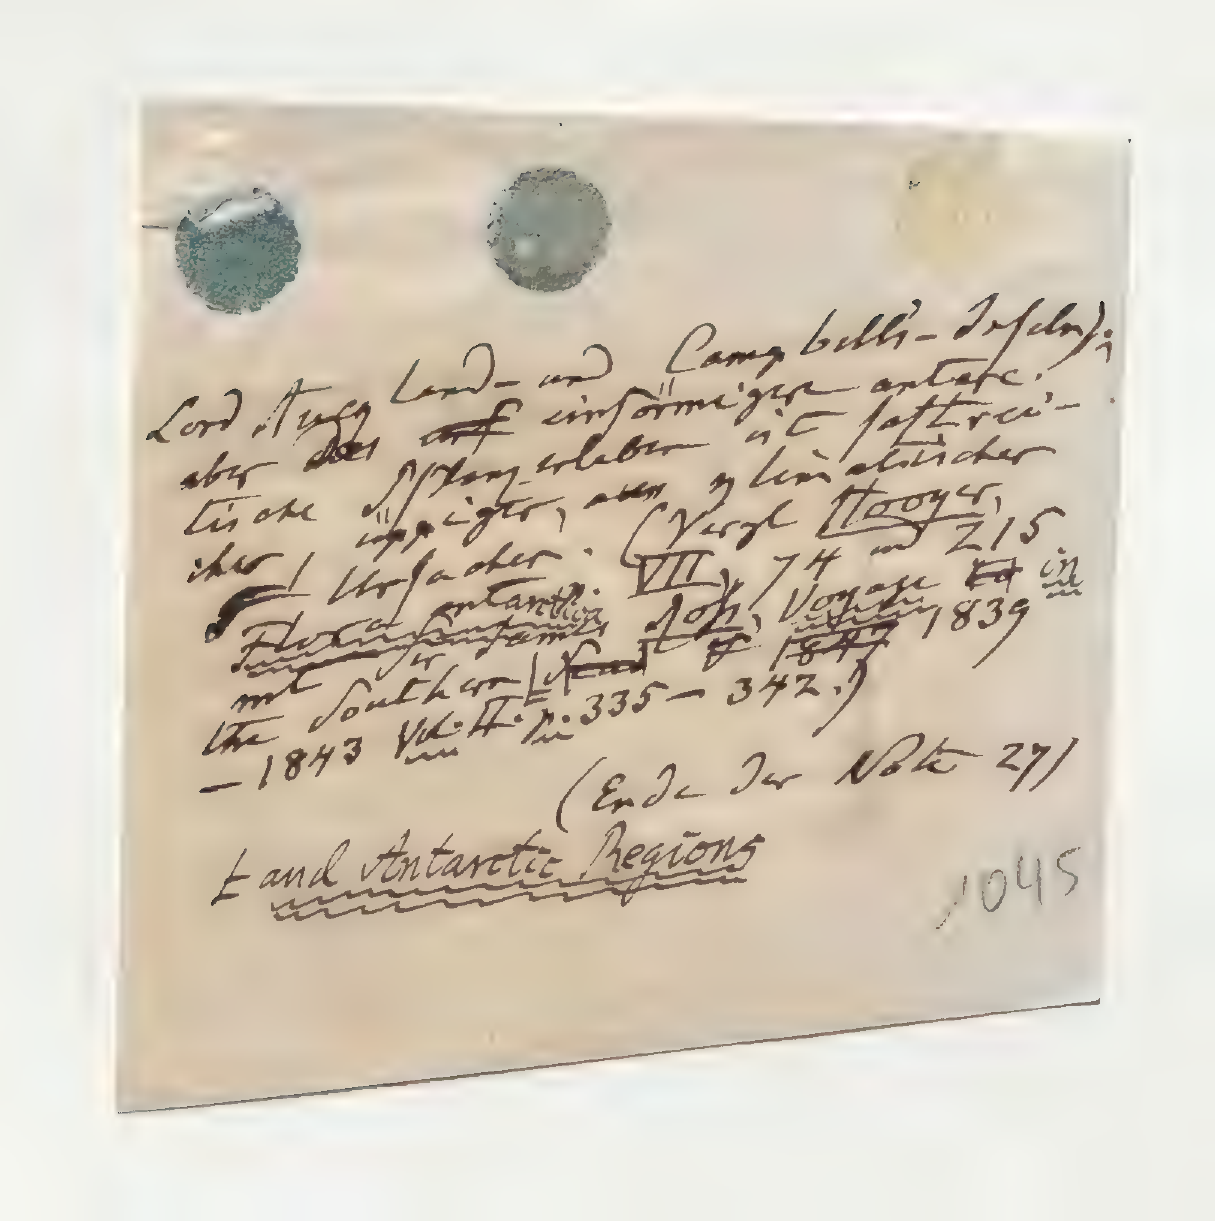 Lord Auckland- und Campbell's-Inseln);
aber das einförmigere antarc-
tische Pflanzenleben ist saftrei-
cher, üppiger, aus climatischer
Ursachen. (Vergl. Hooker,
Flora antarctica VII, 74 und 215
mit Sir James Ross, Voyage in
the Southern 1839
— 1843 Vol. II. p. 335 — 342.)
(Ende der Note 27)
and Antarctic Regions
1045